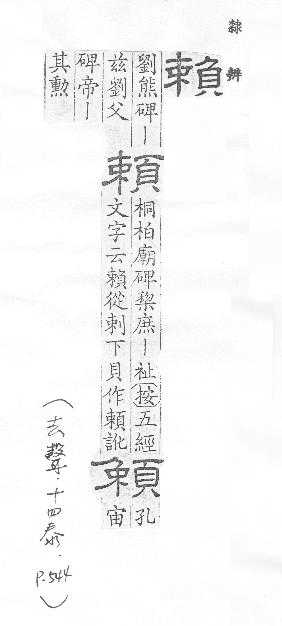 隸辨
賴
劉熊碑〡
兹劉父
頼
桐柏廟碑棃庶〡祉(按)五經
文字云賴從刺下貝作頼訛
頼
孔
宙
碑帝〡
其勲
(去聲.十四泰.P.544)